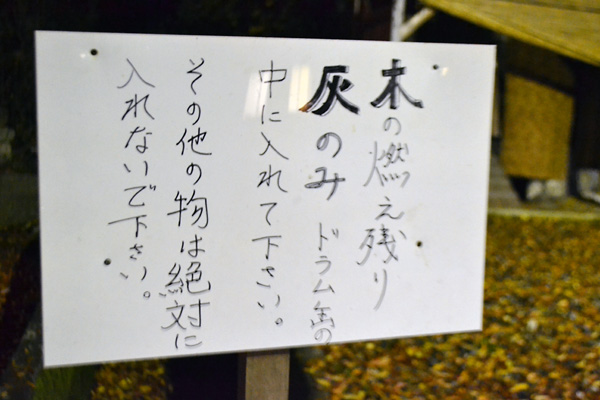 木の燃え残り
灰のみ ドラム缶の
中に入れて下さい。
その他の物は絶対に
入れないで下さい。